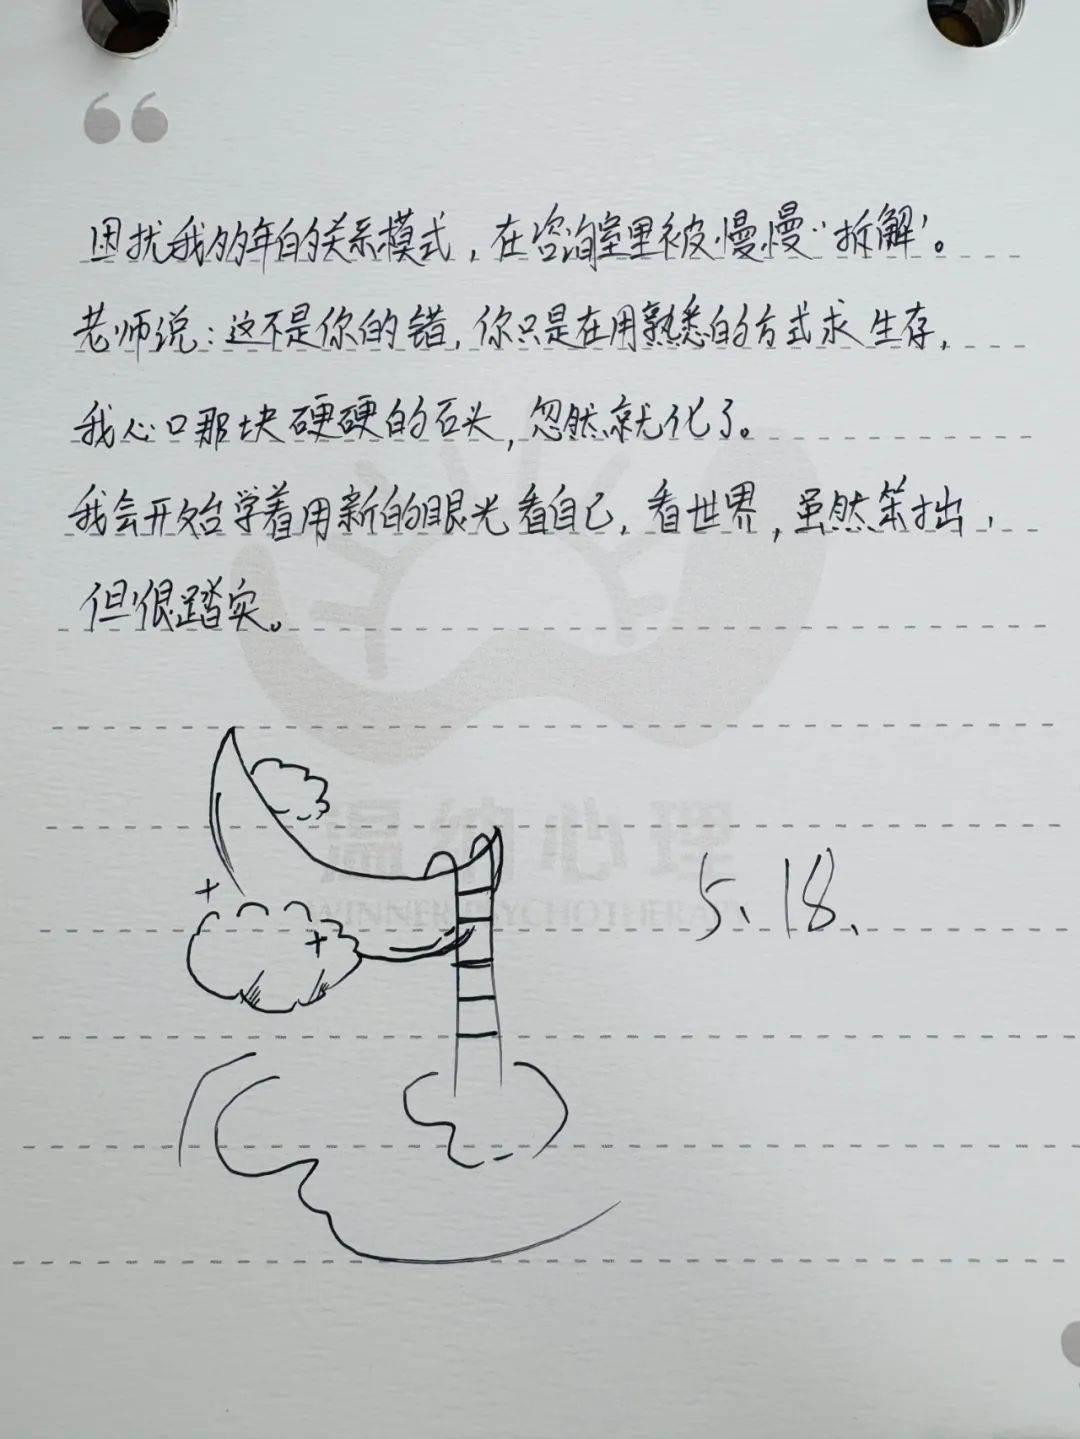 “
困扰我多年的关系模式，在咨询室里被慢慢“拆解”。
老师说：这不是你的错，你只是在用熟悉的方式求生存，
我心口那块硬硬的石头，忽然就化了。
我会开始学着用新的眼光看自己，看世界，虽然笨拙，
但很踏实。
温纳心理
WINNER PSYCHOTHERAPY
5、18、